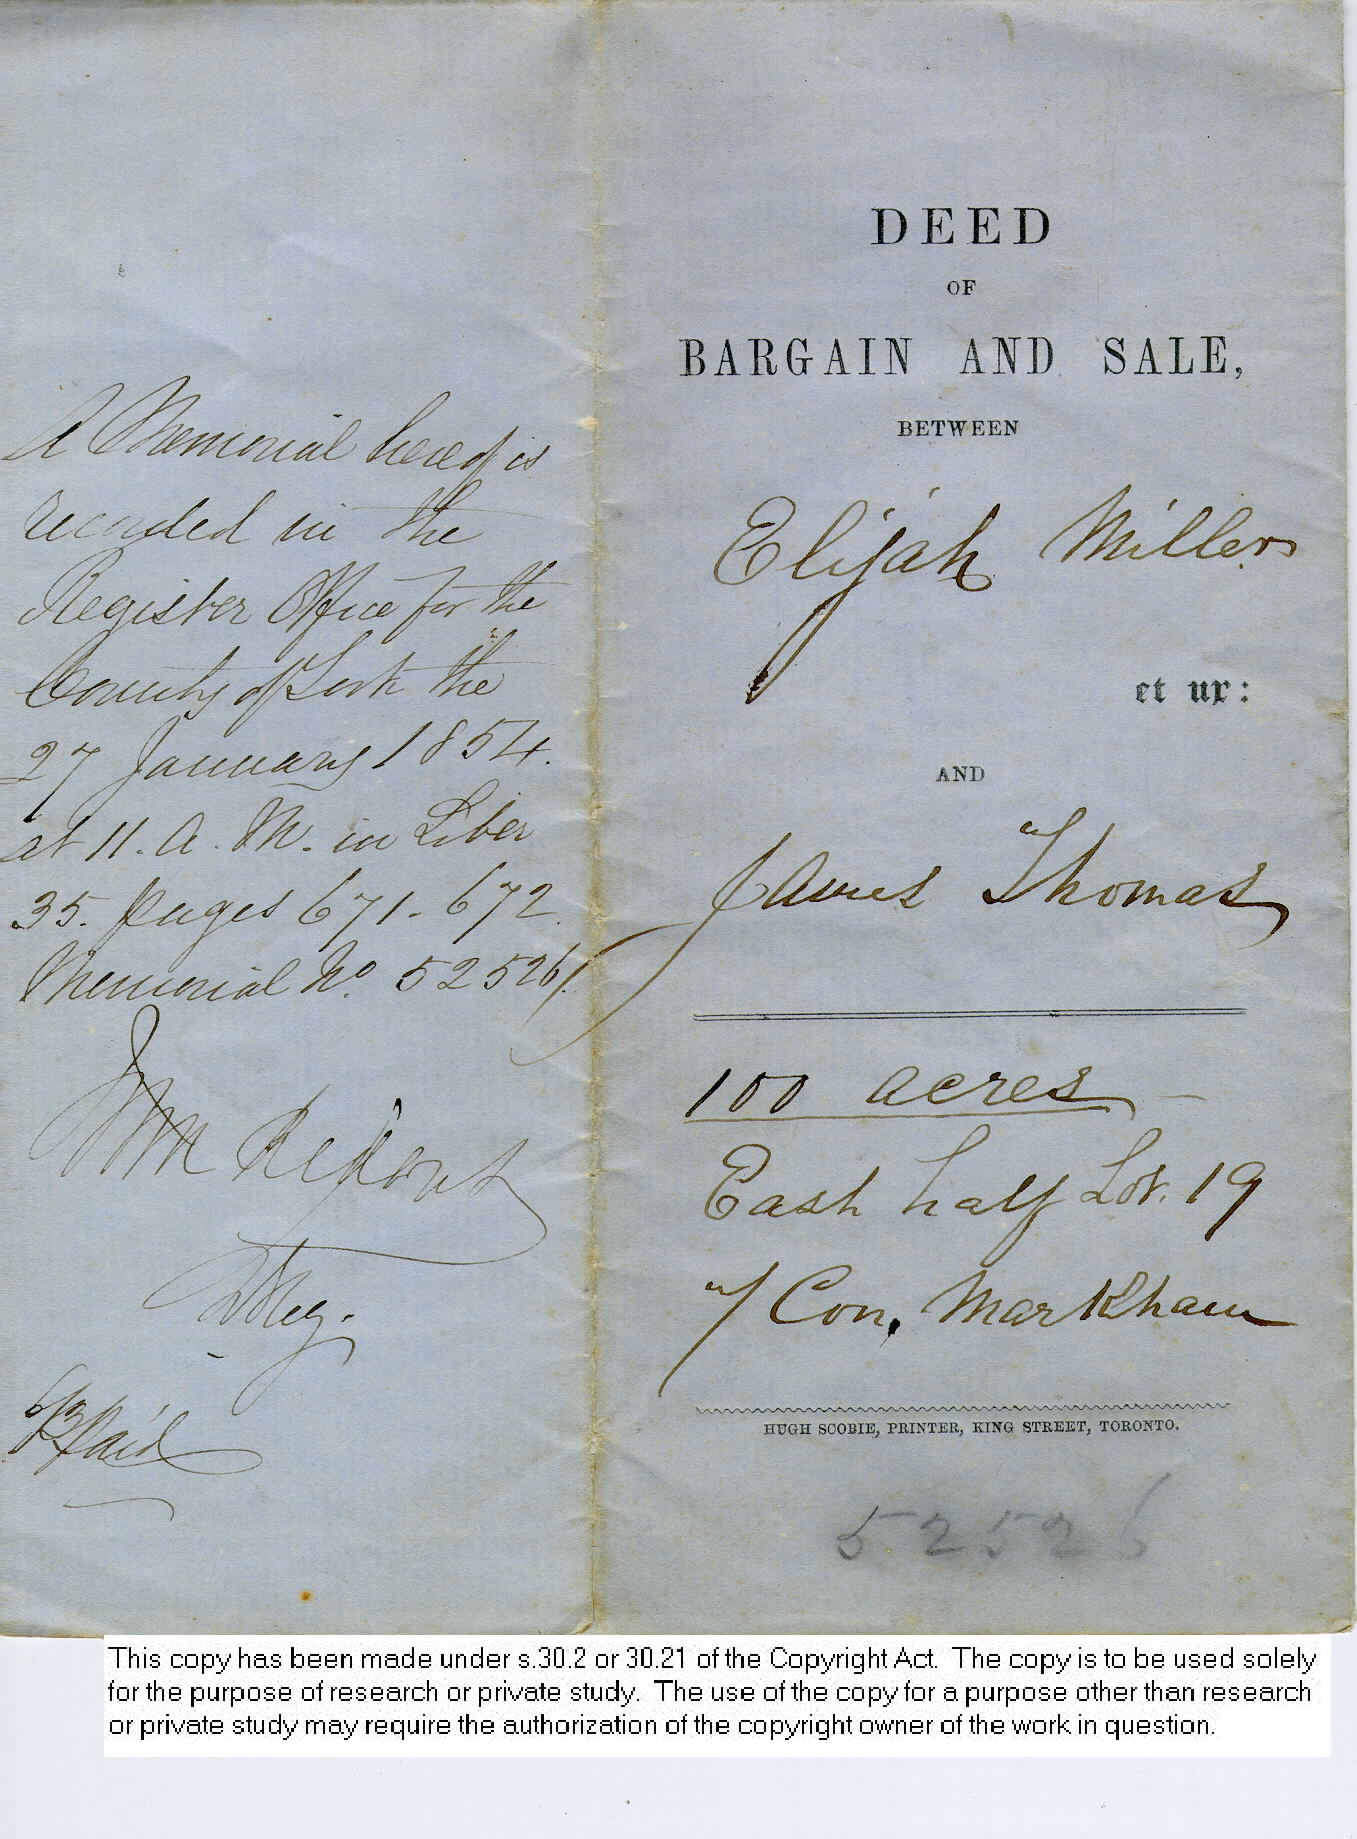 A Memorial hereof is
recorded in the
Register Office for the
County of York the
27 January 1854.
at 11. A. M. in Liber
35. pages 671-672.
Memorial No. 52526.
Wm
DReg.
Paid
DEED
OF
BARGAIN AND SALE,
BETWEEN
Elijah Miller
et ux:
AND
James Thomas
100 acres
East half Lot. 19
7 Con. Markham
HUGH SCOBIE, PRINTER, KING STREET, TORONTO.
52526
This copy has been made under s.30.2 or 30.21 of the Copyright Act. The copy is to be used solely
for the purpose of research or private study. The use of the copy for a purpose other than research
or private study may require the authorization of the copyright owner of the work in question.